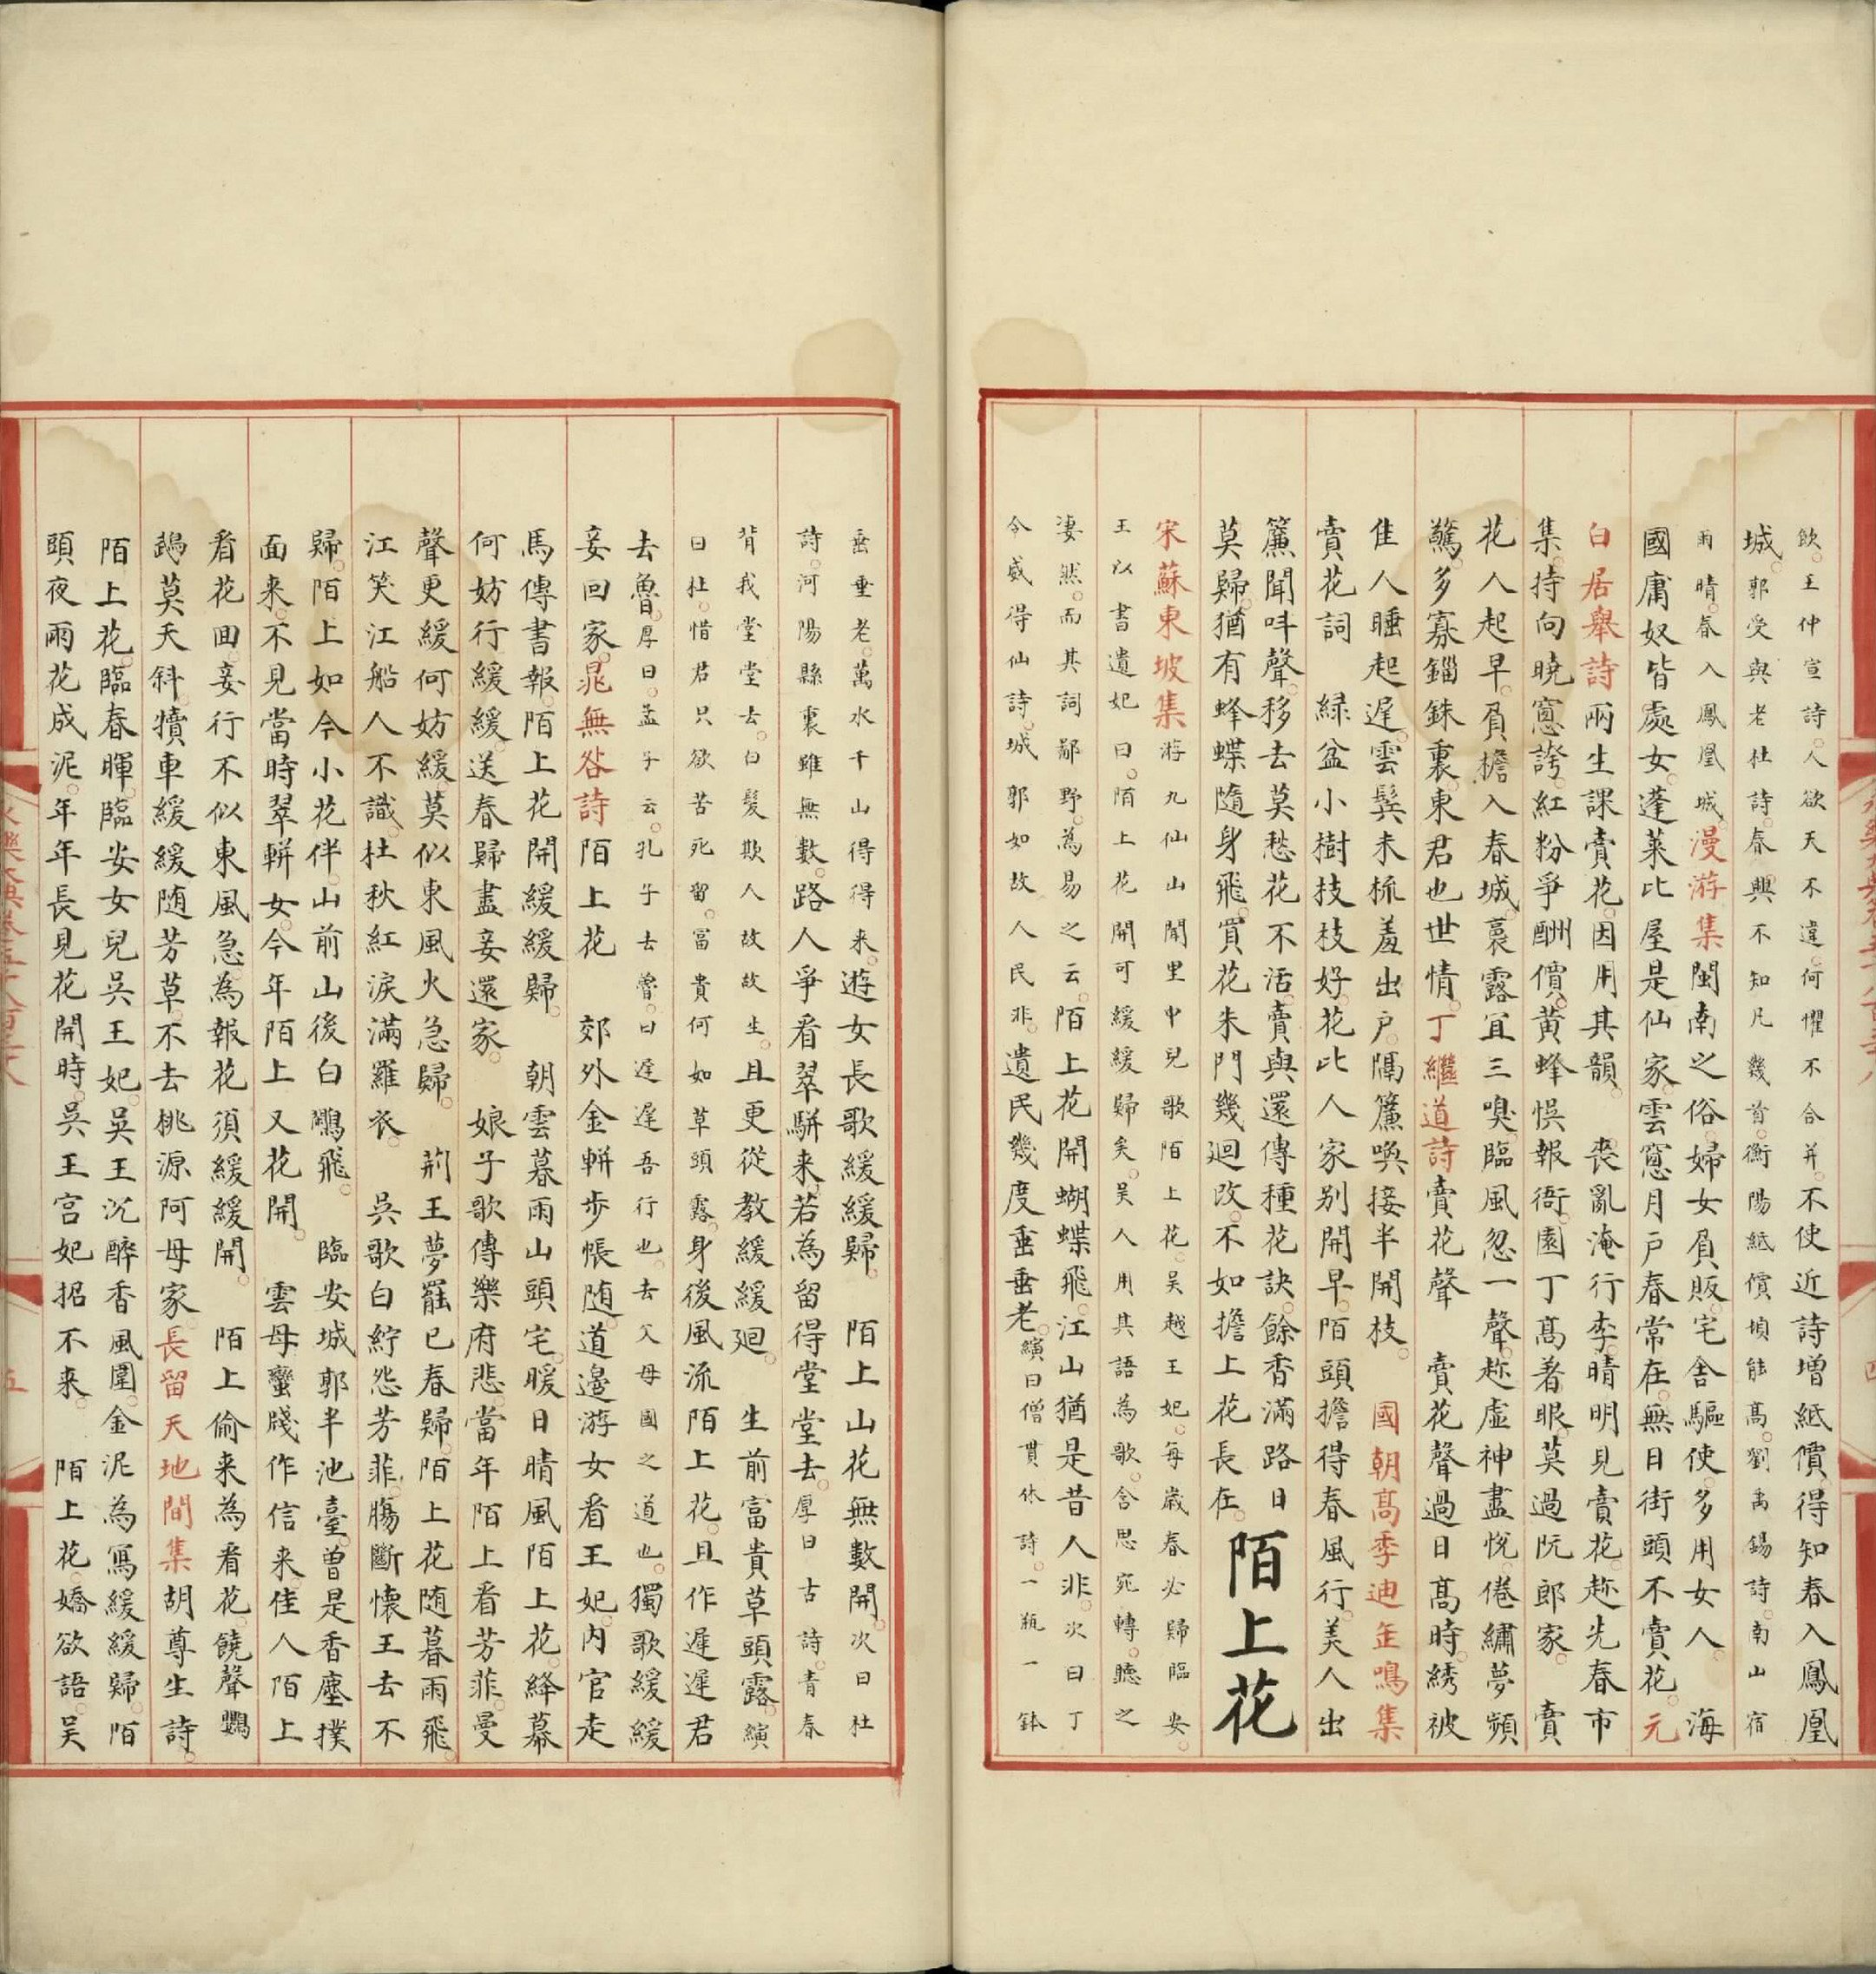 飲。王仲宣詩。人欲天不違。何懼不合并。不使近詩增紙價。得知春入鳳凰
城。郭受與老杜詩。春興不知凡幾首。衡陽紙價頃能髙。劉禹錫詩。南山宿
雨晴。春入鳳凰城。漫游集閩南之俗。婦女負販。宅舍驅使。多用女人。 海
國庸奴皆處女。蓬萊比屋是仙家。雲窻月戶春常在。無日街頭不賣花。元
白居舉詩兩生課賣花。因用其韻。 喪亂淹行李。晴明見賣花。趂先春市
集。持向曉窻誇。紅粉爭酬價。黃蜂悞報衙。園丁髙著眼。莫過阮郎家。 賣
花人起早。肩擔入春城。裛露宜三嗅。臨風忽一聲。趂虛神盡悅。倦繡夢頻
驚。多寡錙銖裏。東君也世情。丁繼道詩賣花聲 賣花聲過日髙時。綉被
佳人睡起遲。雲髩未梳羞出戶。隔簾喚接半開枝。 國朝髙季迪缶鳴集
賣花詞 緑盆小樹枝枝好。花比人家别開早。陌頭擔得春風行。美人出
簾聞呌聲。移去莫愁花不活。賣與還傳種花訣。餘香滿路日
莫歸。猶有蜂蝶隨身飛。買花朱門幾迴改。不如擔上花長在。
陌上花
宋蘇東坡集游九仙山聞里中兒歌陌上花。吳越王妃。每歲春必歸臨安。
王以書遺妃曰。陌上花開可緩緩歸矣。吳人用其語為歌。含思宛轉。聽之
凄然。而其詞鄙野。為易之云。陌上花開蝴蝶飛。江山猶是昔人非。次曰丁
令威得仙詩。城郭如故人民非。遺民幾度垂垂老。縯曰僧貫休詩。一瓶一鉢
垂垂老。萬水千山得得來。遊女長歌緩緩歸。 陌上山花無數開。次曰杜
詩。河陽縣裏雖無數。路人爭看翠駢来。若為留得堂堂去。厚曰古詩。青春
背我堂堂去。白髮欺人故故生。且更從教緩緩廻。 生前富貴草頭露。縯
曰杜。惜君只欲苦死留。富貴何如草頭露。身後風流陌上花。且作遲遲君
去魯。厚曰。孟子云。孔子去魯。曰遲遲吾行也。去父母國之道也。獨歌緩緩
妾回家。晁無咎詩陌上花 郊外金軿步帳随。道邉游女看王妃。内官走
馬傳書報。陌上花開緩緩歸。 朝雲暮雨山頭宅。暖日晴風陌上花。絳幕
何妨行緩緩。送春歸盡妾還家。 娘子歌傳樂府悲。當年陌上看芳菲。曼
聲更緩何妨緩。莫似東風火急歸。 荊王夢罷已春歸。陌上花随暮雨飛。
江笑江船人不識。杜秋紅淚滿羅衣。 吳歌白紵怨芳菲。腸斷懷王去不
歸。陌上如今小花伴。山前山後白鷴飛。 臨安城郭半池臺。曽是香塵撲
面来。不見當時翠軿女。今年陌上又花開。 雲母蠻牋作信来。佳人陌上
看花回。妾行不似東風急。為報花須緩緩開。 陌上偷来為看花。饒聲鸚
鵡莫夭斜。犢車緩緩随芳草。不去桃源阿母家。長留天地間集胡尊生詩。
陌上花。臨春暉。臨安女兒吳王妃。吳王沉醉香風圍。金泥為寫緩緩歸。陌
頭夜雨花成泥。年年長見花開時。吳王宫妃招不来。 陌上花。嬌欲語。吳